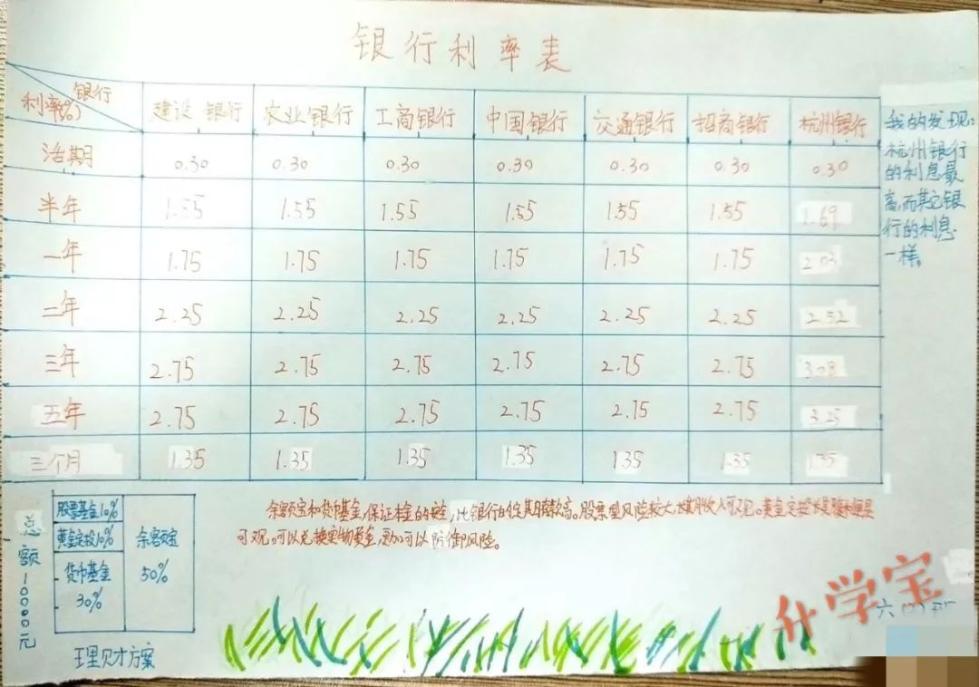 银行利率表
银行
利率(%)
建设银行 农业银行 工商银行 中国银行 交通银行 招商银行 杭州银行
活期 0.30 0.30 0.30 0.30 0.30 0.30 0.30
半年 1.55 1.55 1.55 1.55 1.55 1.55 1.69
一年 1.75 1.75 1.75 1.75 1.75 1.75 2.03
二年 2.25 2.25 2.25 2.25 2.25 2.25 2.52
三年 2.75 2.75 2.75 2.75 2.75 2.75 3.03
五年 2.75 2.75 2.75 2.75 2.75 2.75 3.25
三个月 1.35 1.35 1.35 1.35 1.35 1.35
我的发现:
杭州银行
的利息最
高,而其它银
行的利息
一样。
余额宝和货币基金,保证 比银行的 高。股票型风险较大
可观。可以兑换实物黄金, 可以防御风险。
总额10000元
股票基金10%
黄金定投10%
货币基金
30%
余额宝
50%
理财方案
升学宝
六